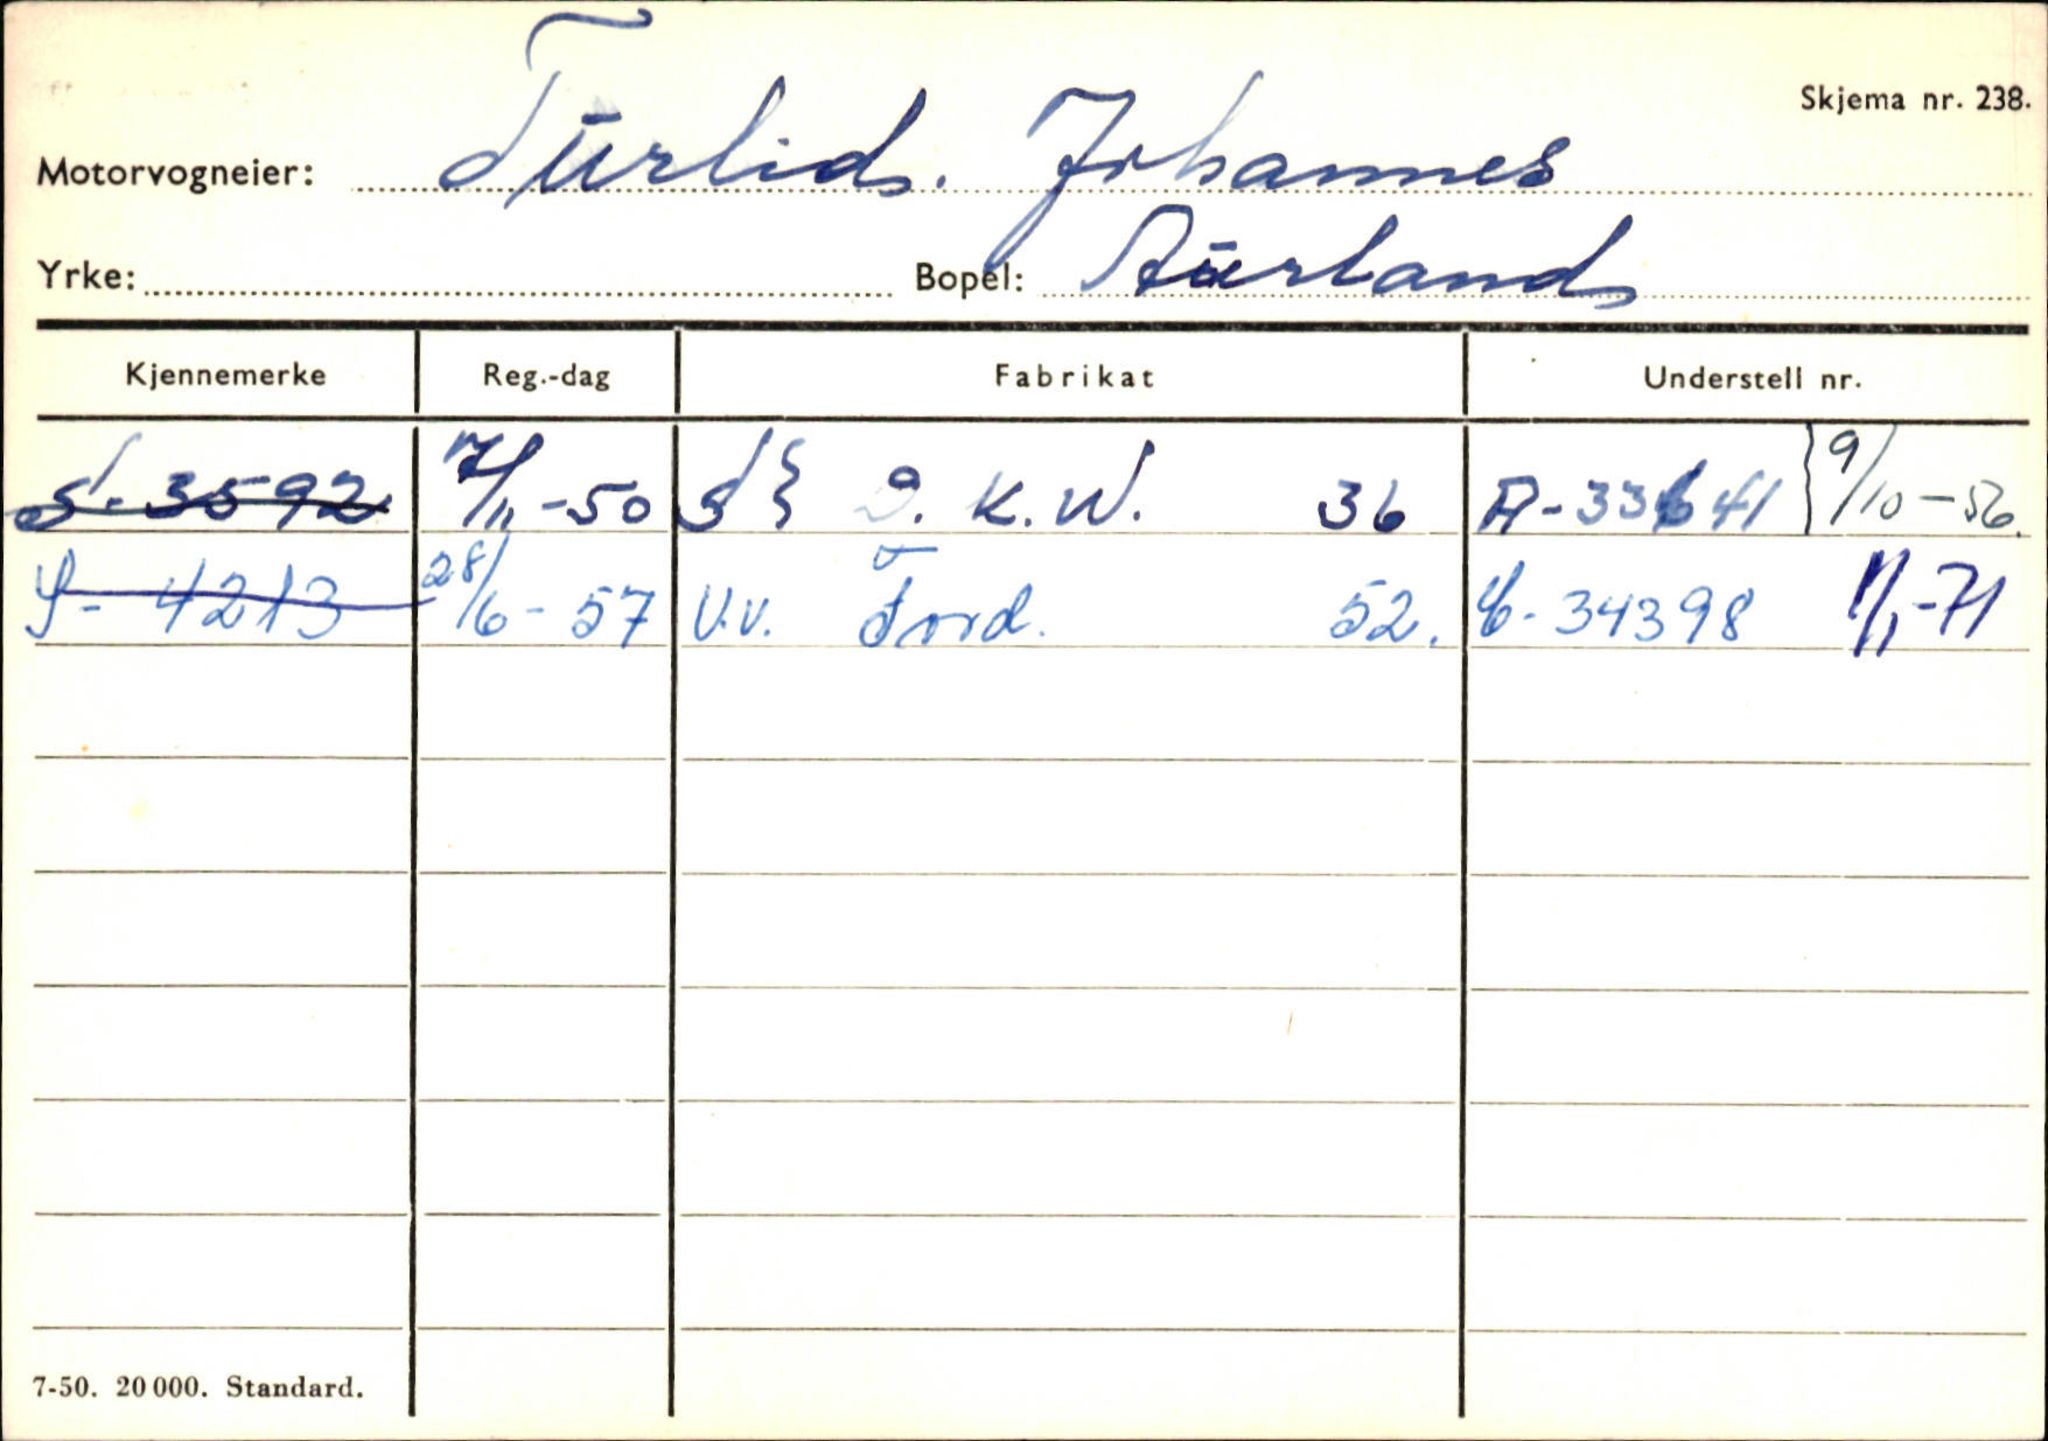 Skjema nr. 238.
Motorvogneier: Turlid. Johannes
Yrke: Bopel: Aurland
Kjennemerke Reg.-dag Fabrikat Understell nr.
S-3592 7/11-50 S} D.K.W. 36 A-33641 } 9/10-56.
S-4213 28/6-57 V.v. Ford. 52. C-34398 1/1-71
7-50. 20 000. Standard.